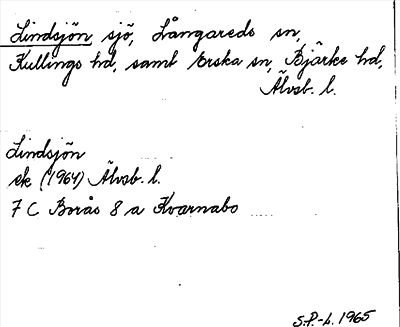 Lindsjön, sjö, Långareds sn,
Kullings hd, samt Erska sn, Bjärke hd,
Älvsb. l.
Lindsjön
ek (1964) Älvsb. l.
7 C Borås 8 a Kvarnabo
S.P.-L. 1965